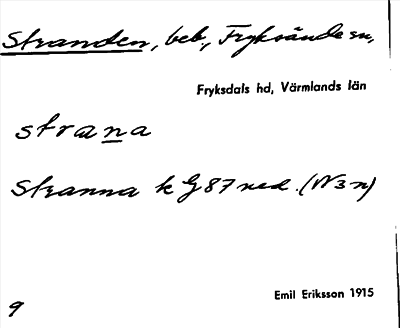 Stranden, beb., Fryksände sn,
Fryksdals hd, Värmlands län
strana
Stranna k G 87 ned. (N3n)
9
Emil Eriksson 1915